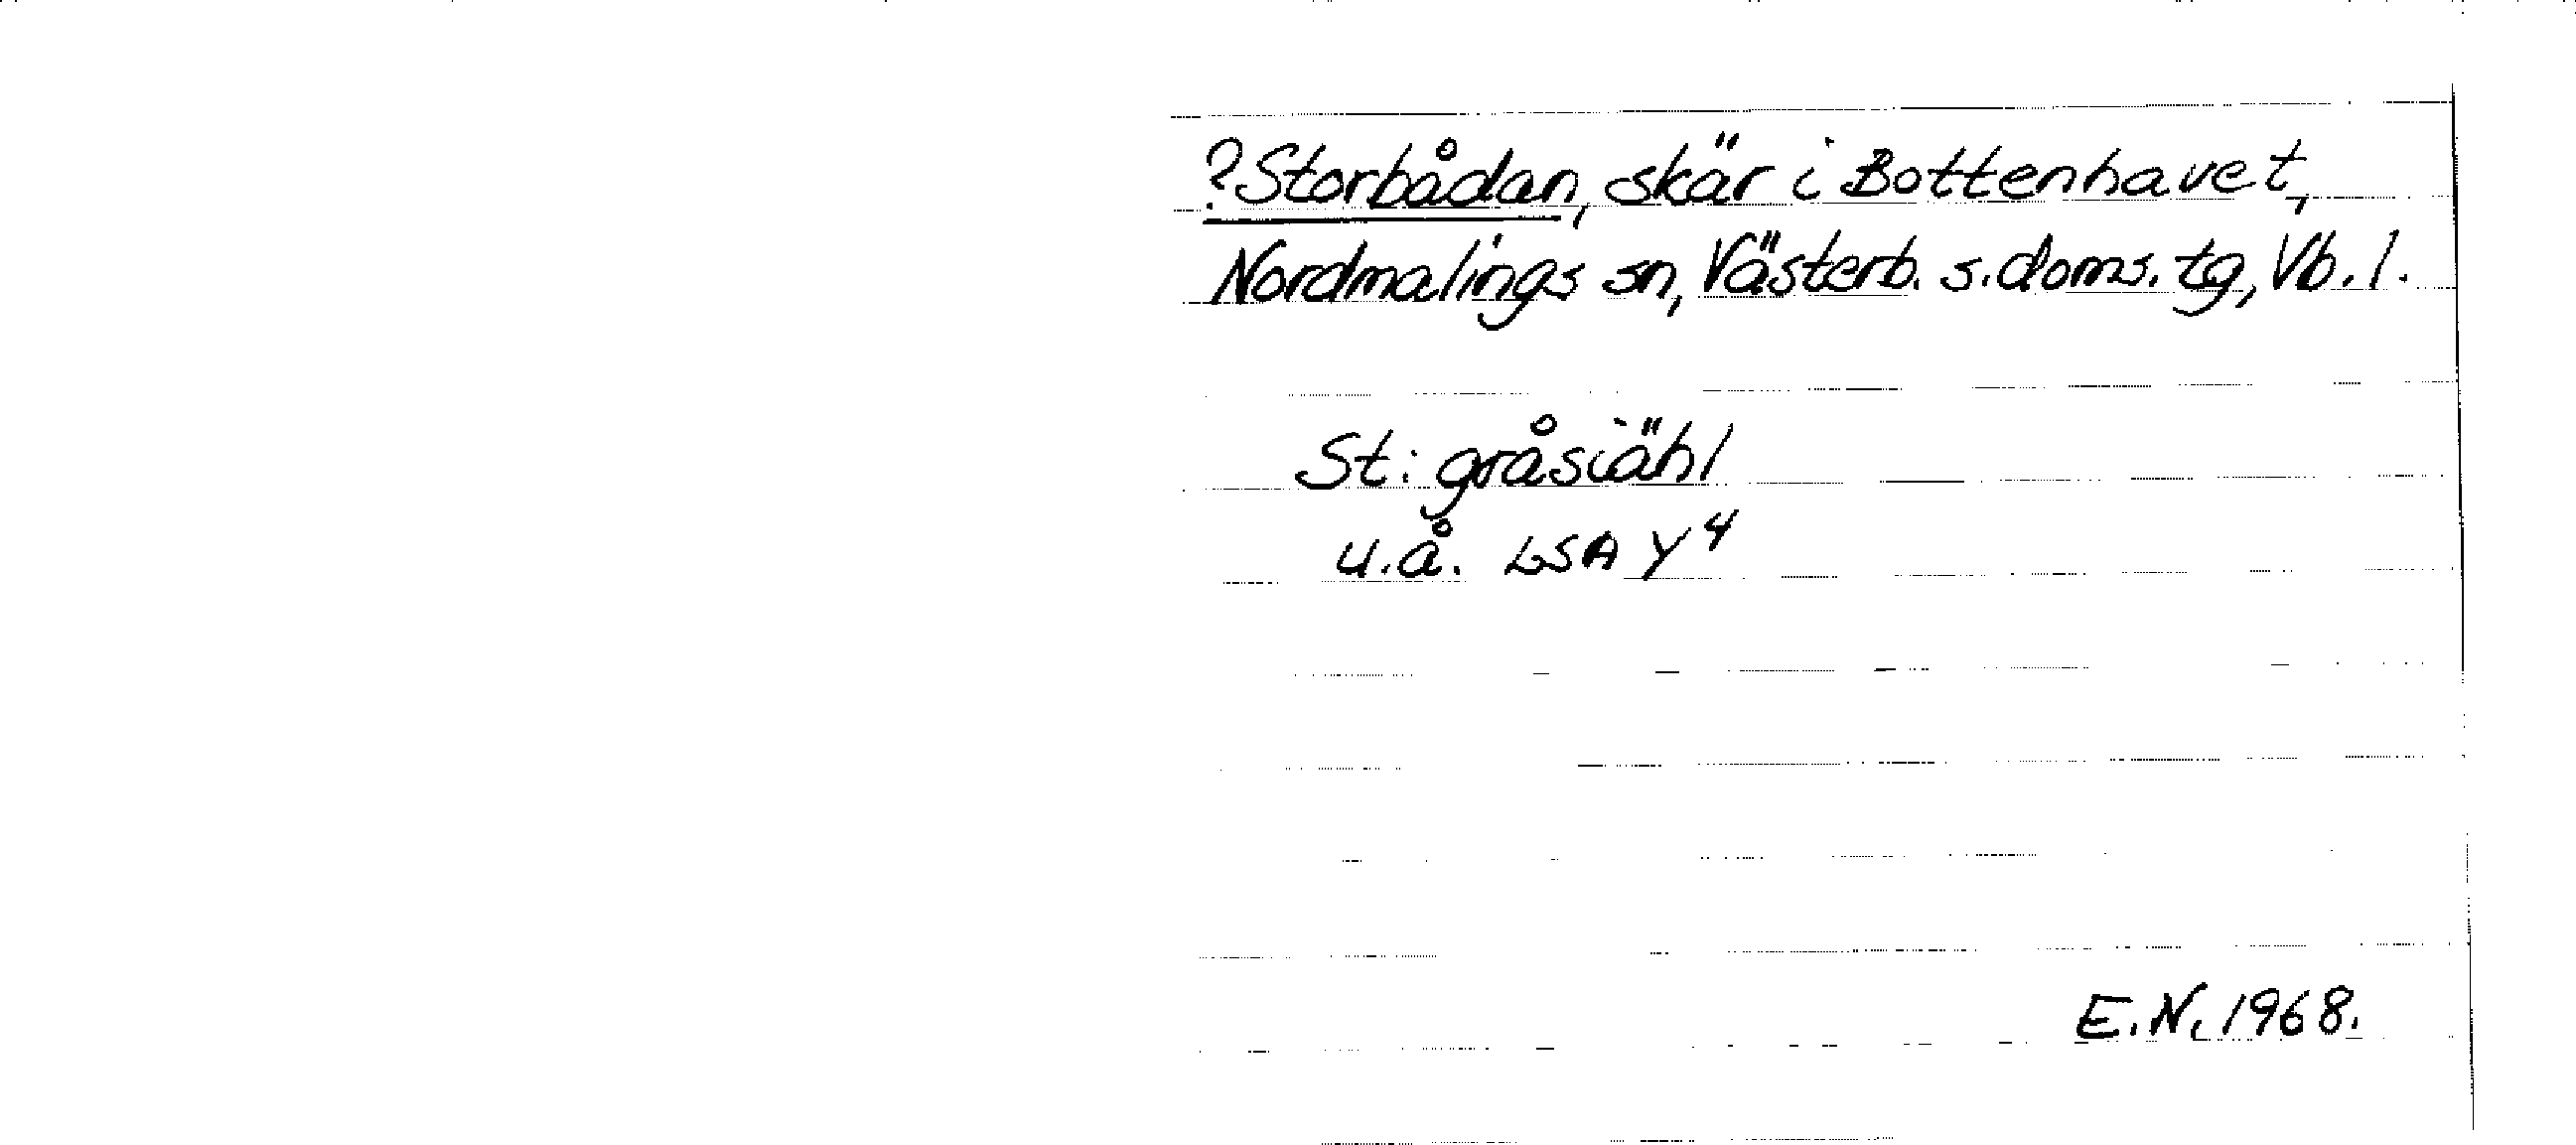 ?Storbådan, skär i Bottenhavet,
Nordmalings sn, Västerb. s. doms. tg, Vb. l.
St: gråsiähl
u.å. LSA Y4
E.N. 1968.